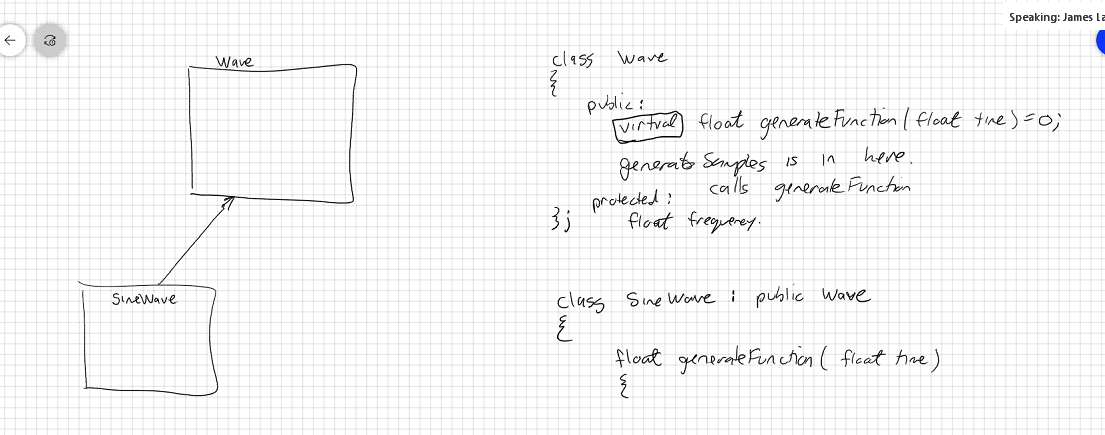 Speaking: James La
Wave
class Wave
{
public:
virtual float generateFunction(float time)=0;
generate Samples is in here.
calls generateFunction
protected:
float frequency.
};
SineWave
class SineWave : public Wave
{
float generateFunction( float time)
{